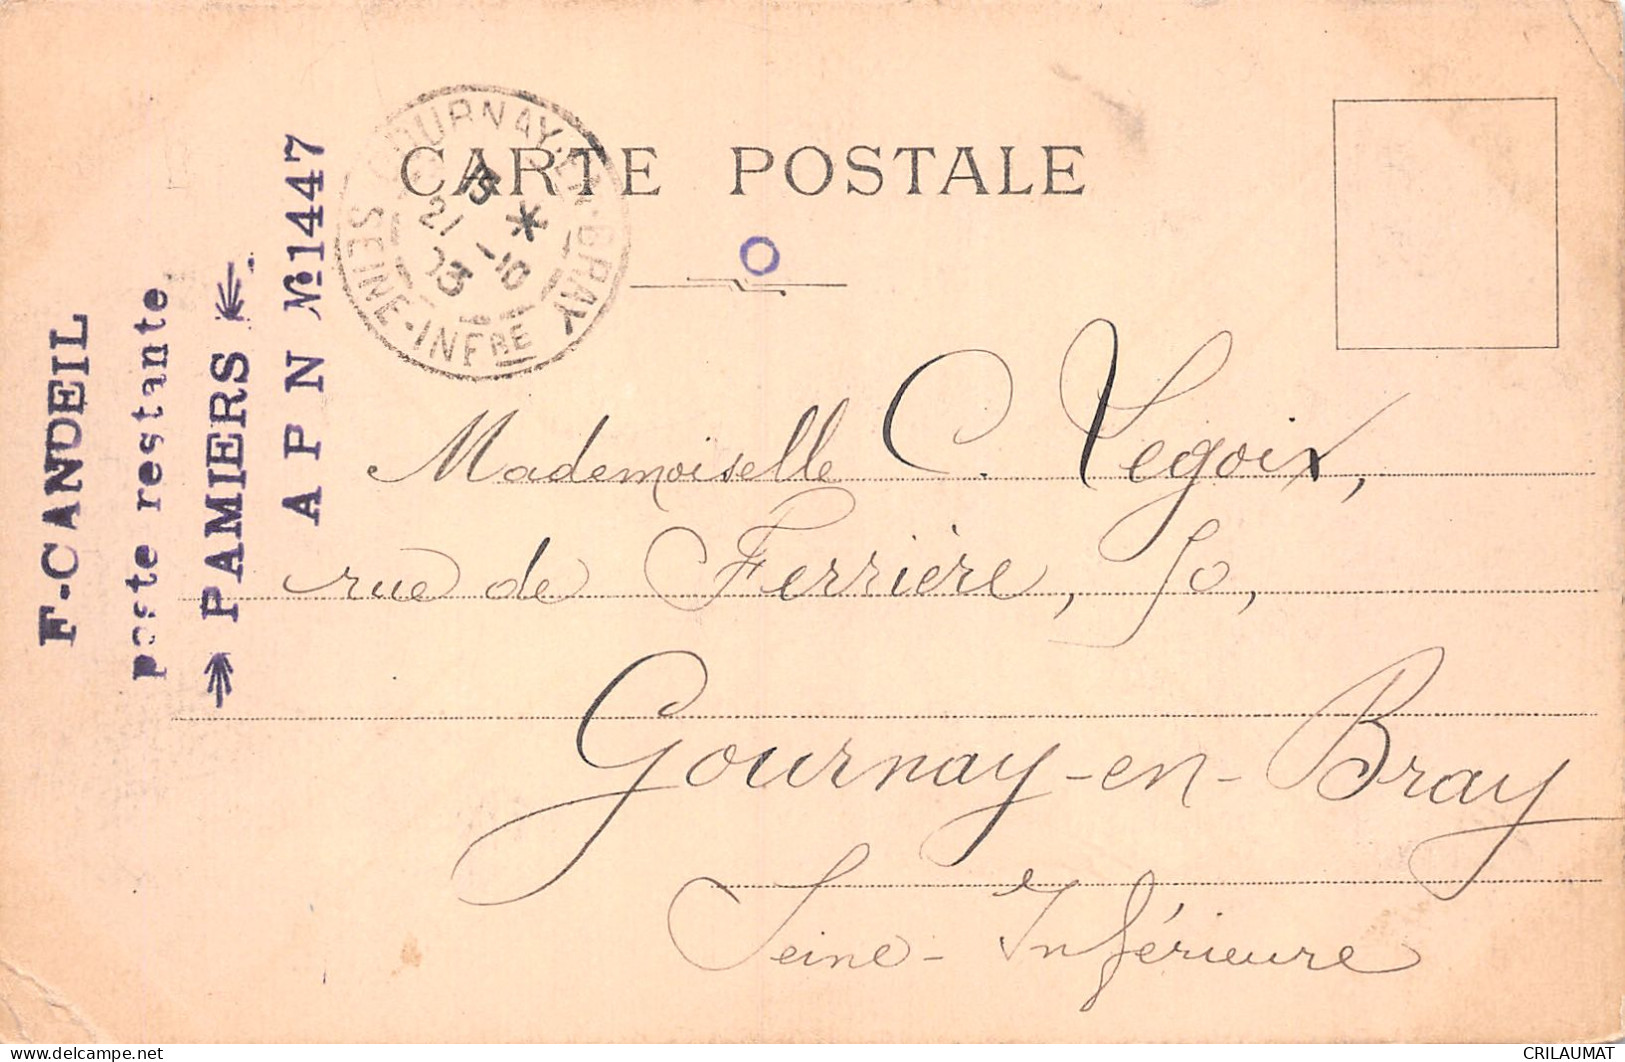 CARTE POSTALE
F-CANDEIL
poste restante
PAMIERS
A P N № 1447
GOURNAY-EN-BRAY
15 *
21 -10
03
SEINE-INFRE
Mademoiselle C. Legoix,
rue de Ferrière, 50,
Gournay-en-Bray
Seine-Inférieure
CRILAUMAT